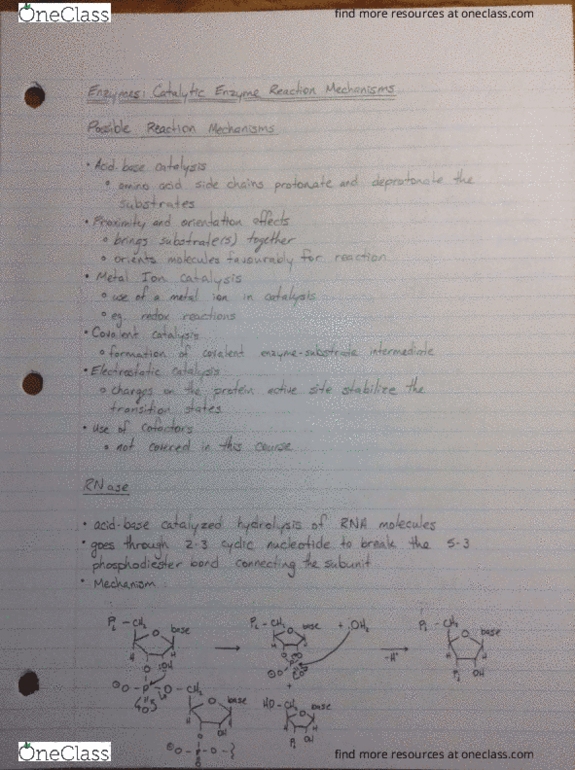 OneClass
find more resources at oneclass.com
Enzymes: Catalytic Enzyme Reaction Mechanisms
Possible Reaction Mechanisms
• Acid-base catalysis
° amino acid side chains protonate and deprotonate the
substrates
• Proximity and orientation effects
° brings substrate(s) together
° orients molecules favourably for reaction
• Metal Ion catalysis
° use of a metal ion in catalysis
° eg. redox reactions
• Covalent catalysis
° formation of covalent enzyme-substrate intermediate
• Electrostatic catalysis
° charges on the protein active site stabilize the
transition states
• Use of Cofactors
° not covered in this course
RNase
• acid-base catalyzed hydrolysis of RNA molecules
• goes through 2-3 cyclic nucleotide to break the 5-3
phosphodiester bond connecting the subunit
• Mechanism
Pi - CH2 base
Pi - CH2 base + OH2
-H+
Pi - CH2 base
OH
O - CH2 base
OH
HO - CH2 base
OH
Pi
OneClass
find more resources at oneclass.com